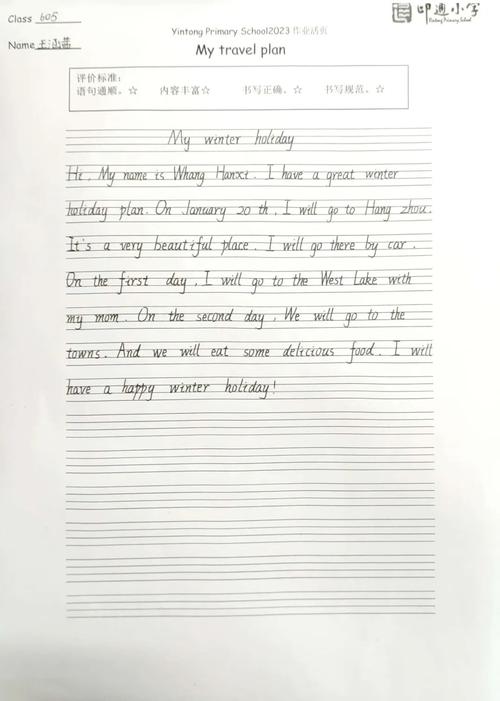 Class 605
印通小学
Yintong Primary School
Name 王涵茜
Yintong Primary School2023作业活页
My travel plan
评价标准：
语句通顺。☆ 内容丰富☆ 书写正确。☆ 书写规范。☆
My winter holiday
Hi. My name is Whang Hanxi. I have a great winter
holiday plan. On January 20 th, I will go to Hang zhou.
It's a very beautiful place. I will go there by car.
On the first day, I will go to the West Lake with
my mom. On the second day, We will go to the
towns. And we will eat some delicious food. I will
have a happy winter holiday!